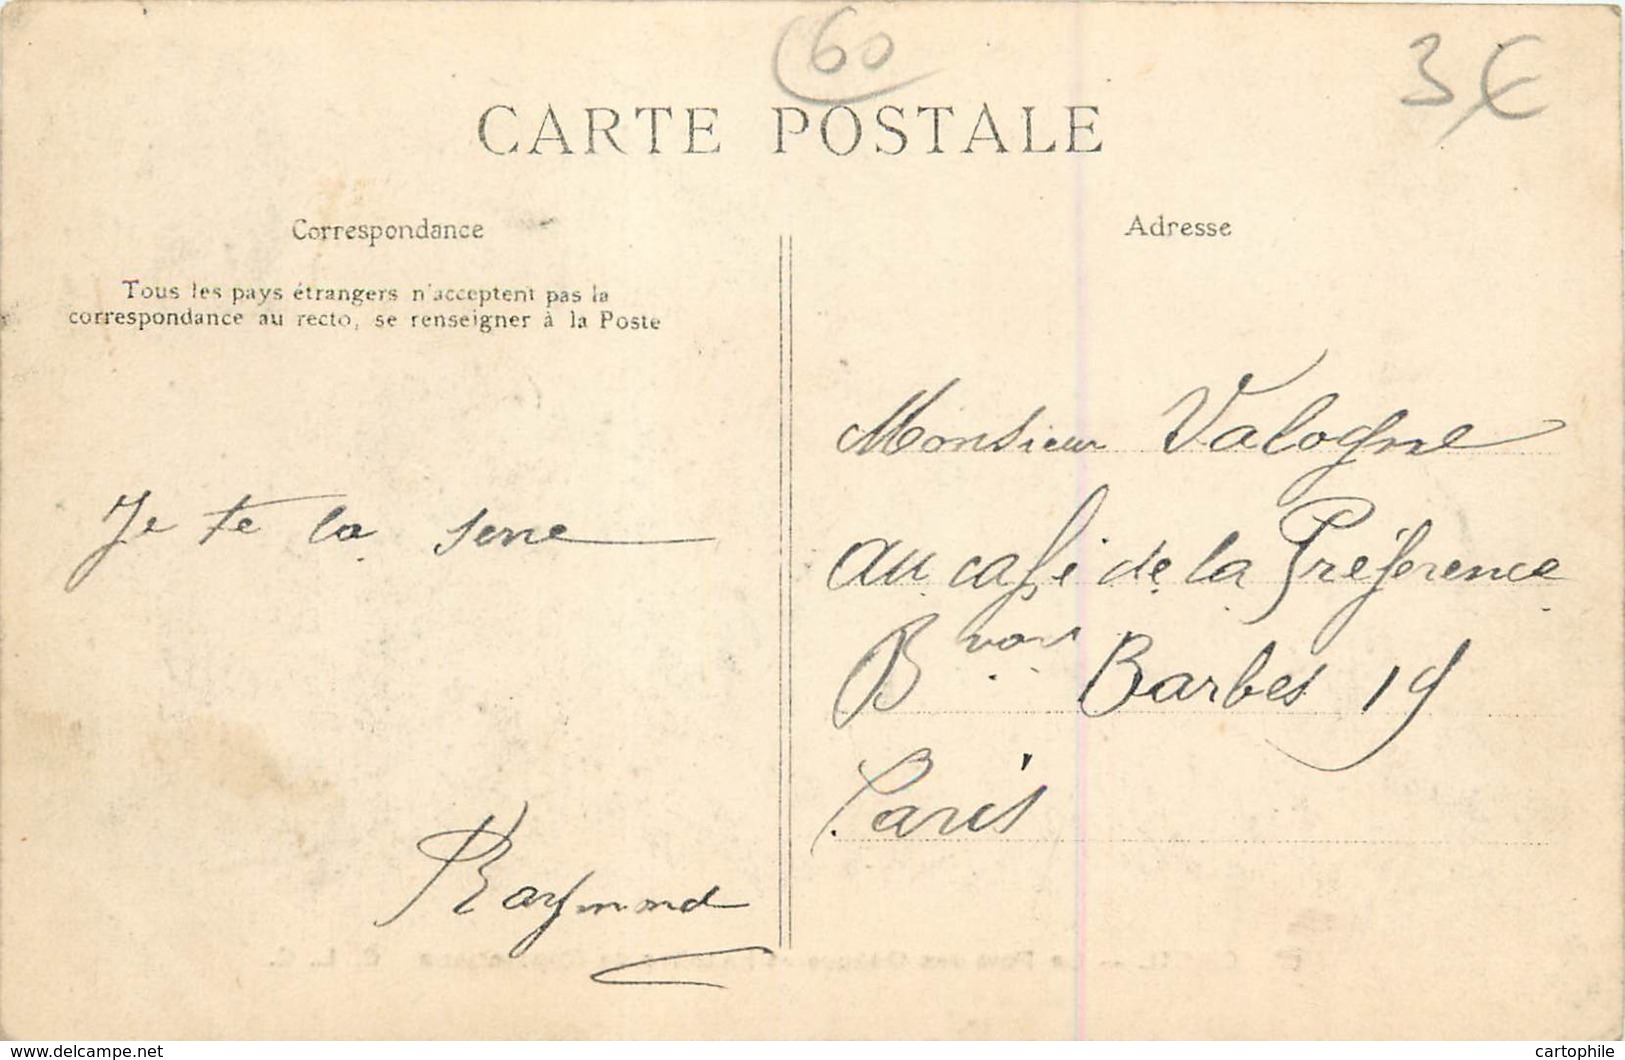 60
3€
CARTE POSTALE
Correspondance
Adresse
Tous les pays étrangers n'acceptent pas la
correspondance au recto, se renseigner à la Poste
Je te la serre
Raymond
Monsieur Valogne
au café de la Préférence
Bvard Barbes 19
Paris
www.delcampe.net
cartophile